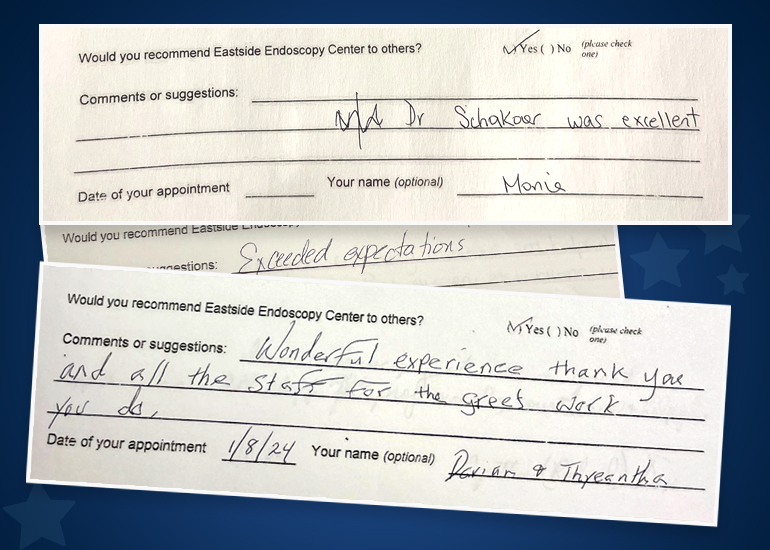 Would you recommend Eastside Endoscopy Center to others? Yes ( ) No (please check one)
Comments or suggestions:
Dr Schakaer was excellent
Date of your appointment Your name (optional)
Would you recommend Eastside
Exceeded expectations
Would you recommend Eastside Endoscopy Center to others? Yes ( ) No (please check one)
Comments or suggestions: Wonderful experience thank you
and all the staff for the great work
you do.
Date of your appointment 1/8/24 Your name (optional) & Thyeantha